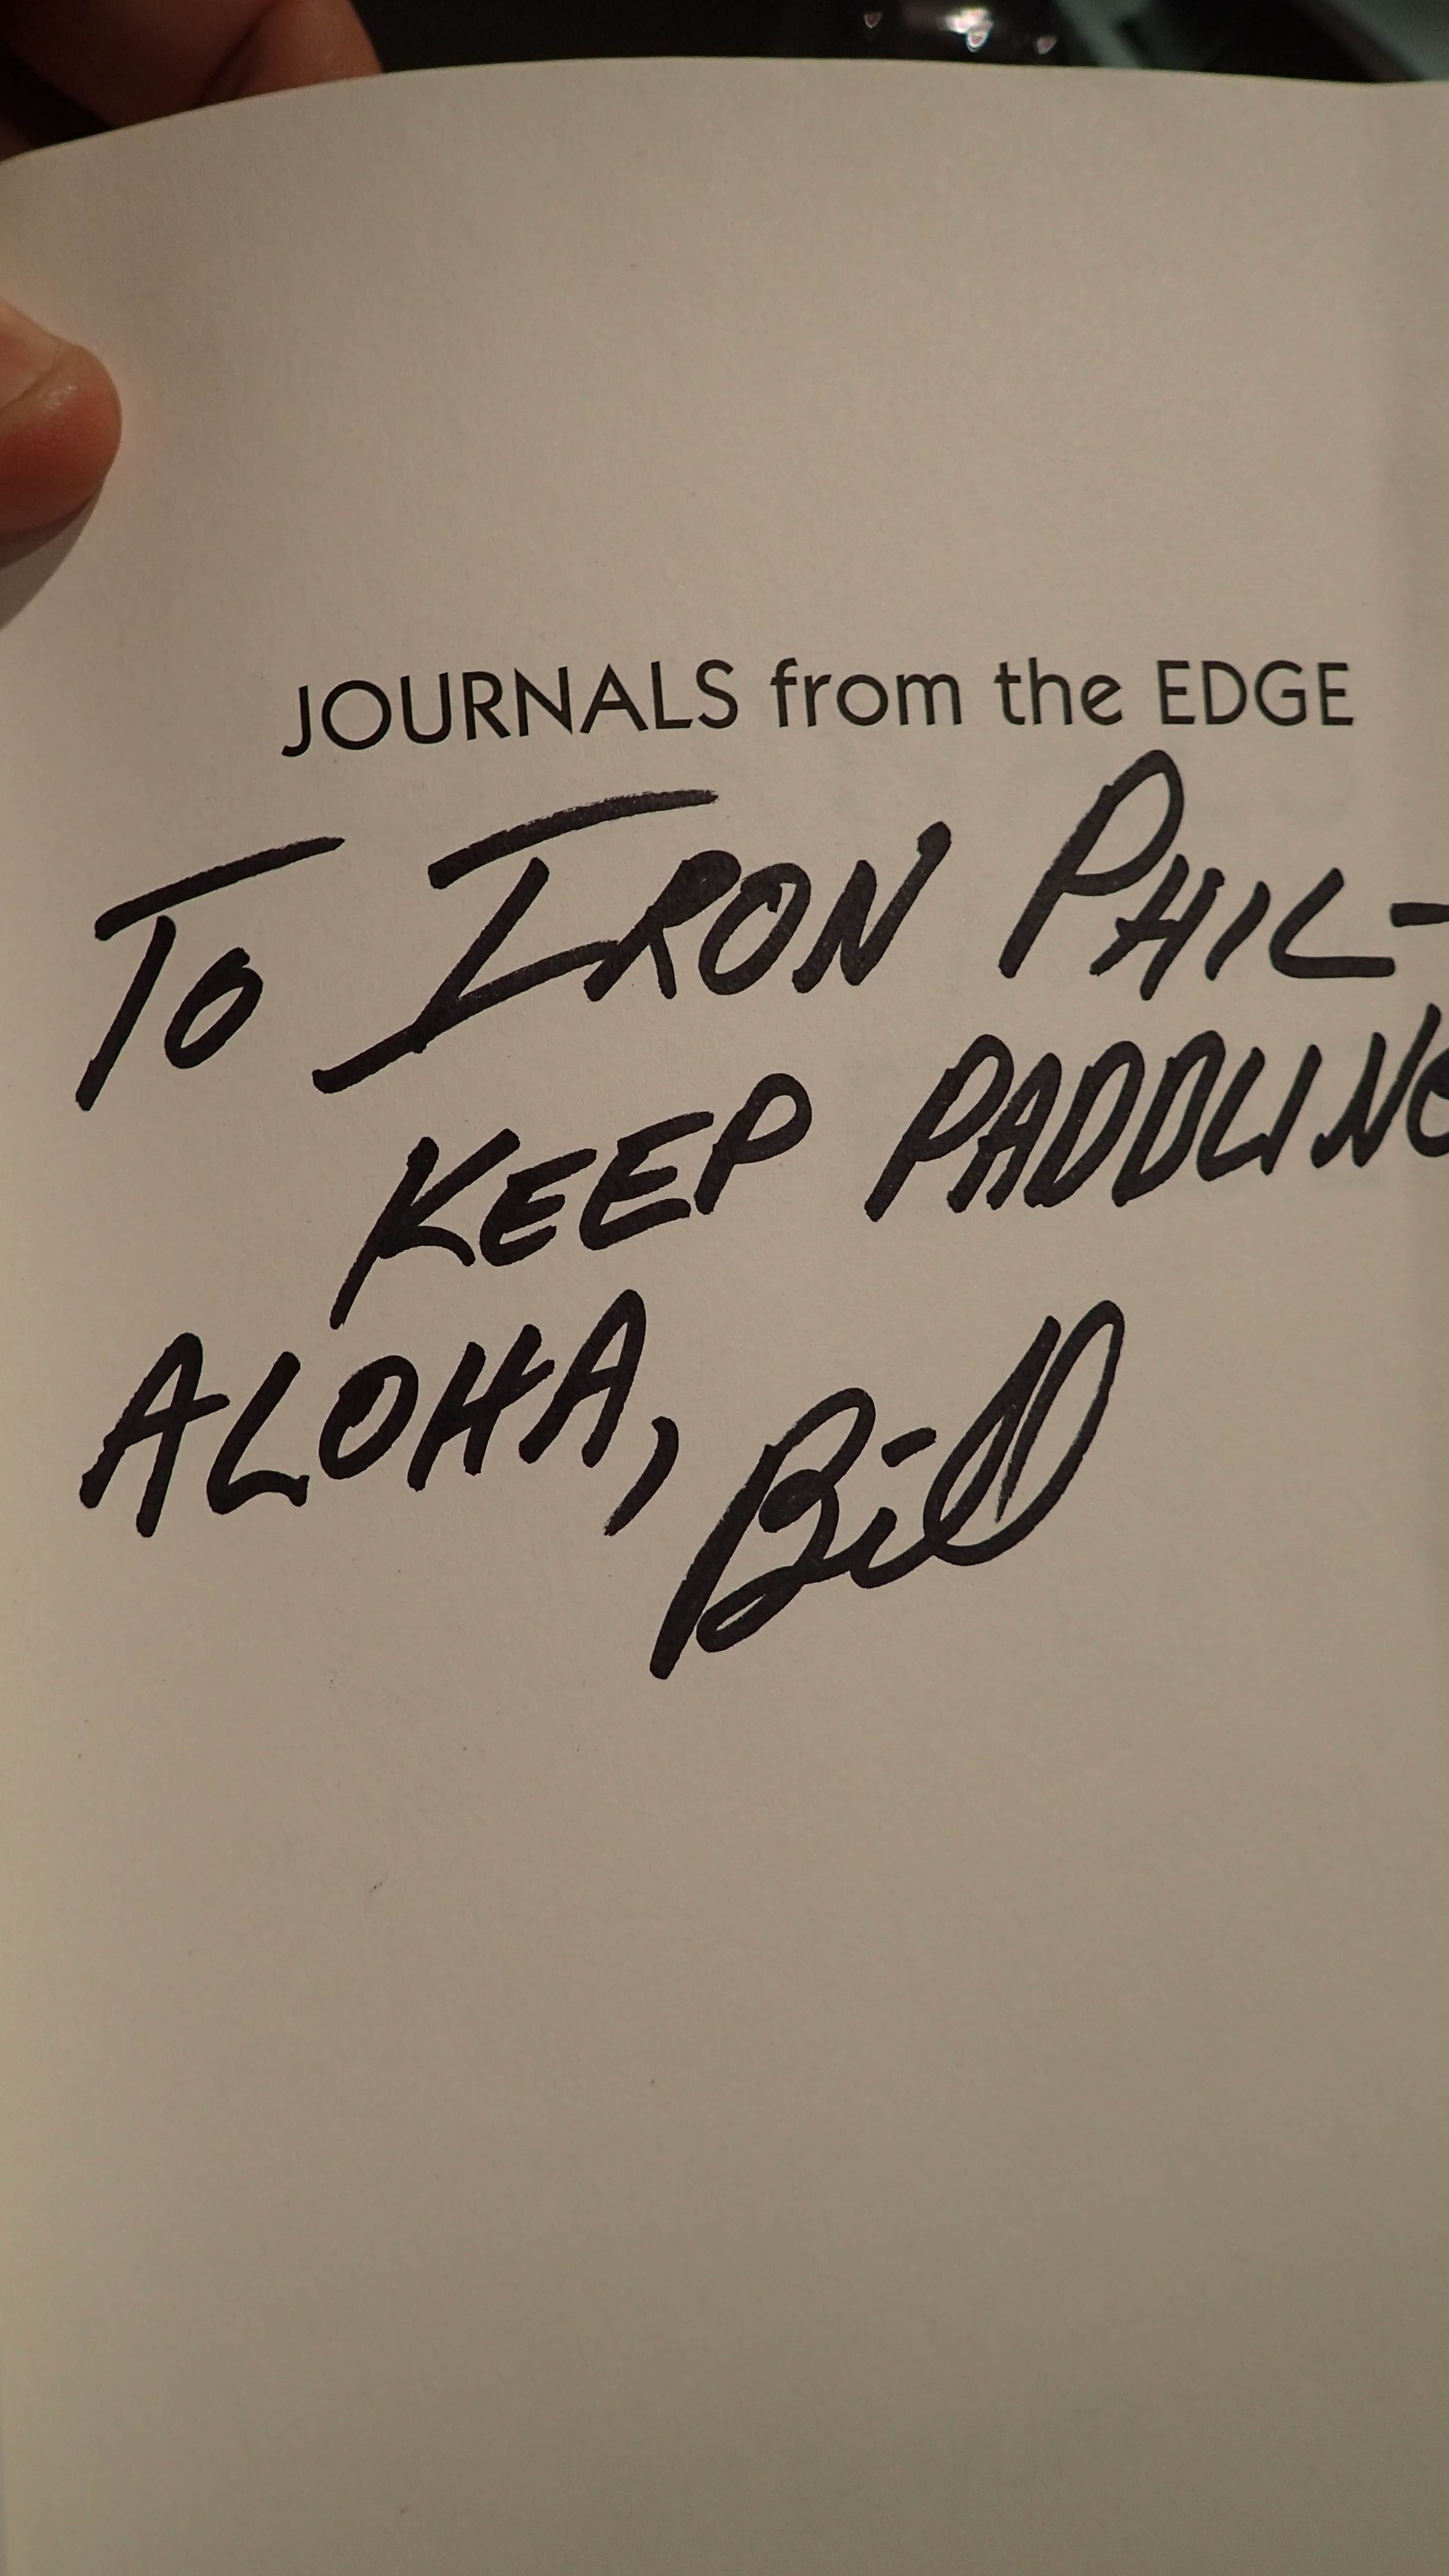 JOURNALS from the EDGE
TO IRON PHIL-
KEEP PADDLING
ALOHA, Bill